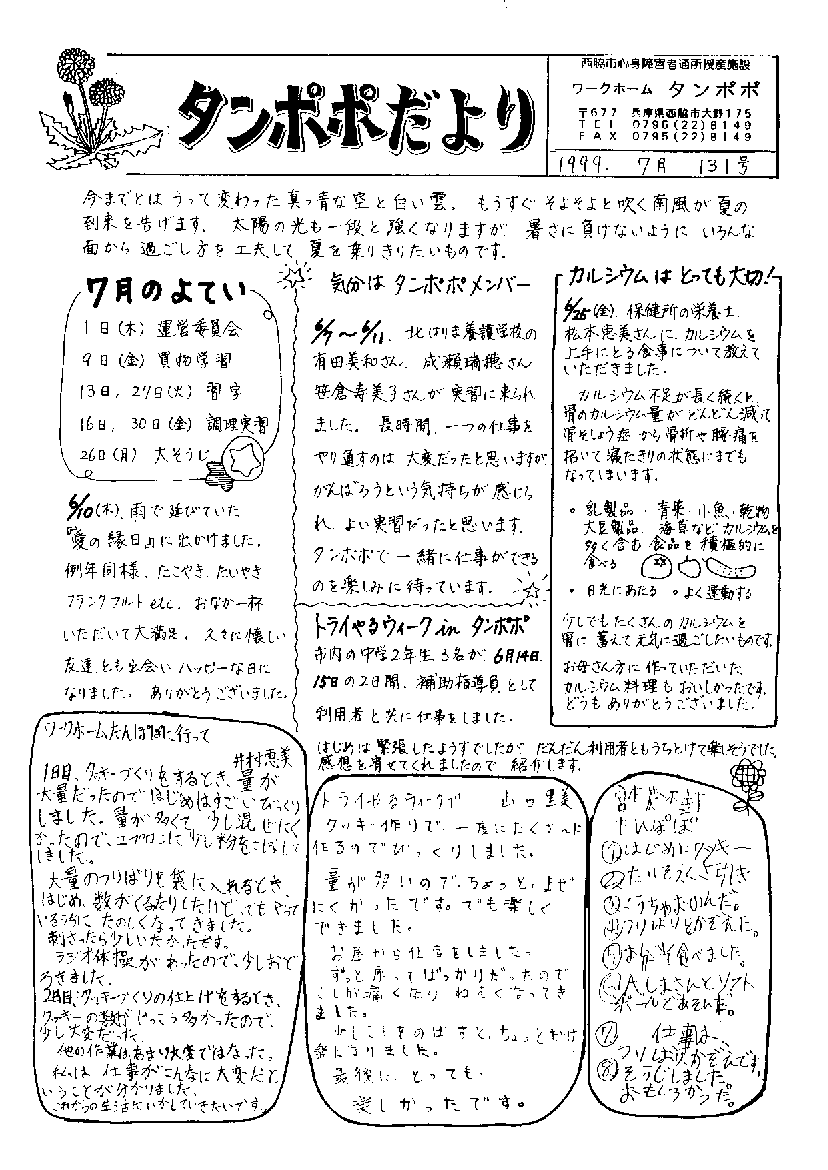 タンポポだより
西脇市心身障害者通所授産施設
ワークホーム タンポポ
〒677 兵庫県西脇市大野175
TEL 0795(22)8149
FAX 0795(22)8149
1999. 7月 131号
今までとは うって変わった真っ青な空と白い雲。もうすぐ そよそよと吹く南風が夏の
到来を告げます。太陽の光も一段と強くなりますが 暑さに負けないように いろんな
面から過ごし方を工夫して 夏を乗りきりたいものです。
7月のよてい
1日(木) 運営委員会
9日(金) 買物学習
13日, 27日(火) 習字
16日, 30日(金) 調理実習
26日(月) 大そうじ
6/10(木)、雨で延びていた
『愛の縁日』に出かけました。
例年同様、たこやき、たいやき
フランクフルトetc. おなか一杯
いただいて大満足。久々に懐しい
友達とも出会い ハッピーな日に
なりました。ありがとうございました。
気分は タンポポメンバー
6/7〜6/11、北はりま養護学校の
有田美和さん、成瀬瑞穂さん
笹倉寿美子さんが実習に来られ
ました。長時間、一つの仕事を
やり通すのは 大変だったと思いますが
がんばろうという気持ちが感じら
れ、よい実習だったと思います。
タンポポで一緒に仕事ができる
のを楽しみに待っています。
トライやるウィーク in タンポポ
市内の中学2年生3名が、6月14日、
15日の2日間、補助指導員として
利用者と共に仕事をしました。
はじめは緊張したようすでしたが だんだん利用者ともうちとけて楽しそうでした。
感想を寄せてくれましたので 紹介します。
カルシウムは とっても大切!
6/25(金)、保健所の栄養士、
松本恵美さんに、カルシウムを
上手にとる食事について教えて
いただきました。
カルシウム不足が長く続くと、
骨のカルシウム量がどんどん減って
骨そしょう症から骨折や腰痛を
招いて寝たきりの状態にまでも
なってしまいます。
○ 乳製品・青菜・小魚・乾物
大豆製品・海草などカルシウムを
多く含む食品を積極的に
食べる
○ 日光にあたる ○よく運動する
少しでもたくさんのカルシウムを
骨に蓄えて元気に過ごしたいものです。
お母さん方に作っていただいた
カルシウム料理もおいしかったです。
どうもありがとうございました。
ワークホームたんぽぽに行って
井村恵美
1日目、クッキーづくりをするとき、量が
大量だったのではじめはすごいびっくり
しました。量が多くて、少し混ぜにく
かったので、エプロンに少し粉をこぼして
しまいました。
大量のつりばりを袋に入れるとき、
はじめ、数がくるったりしたけど、でもやって
いるうちに たのしくなってきました。
刺さったら少しいたかったです。
ラジオ体操があったので、少しおど
ろきました。
2日目、クッキーづくりの仕上げをするとき、
クッキーの数がけっこう多かったので、
少し大変だった。
他の作業はあまり大変ではなかった。
私は仕事がこんなに大変だと
いうことが分かりました。
これからの生活にいかしていきたいです。
トライやるウィークで 山口里美
クッキー作りで、一度にたくさん
作るのでびっくりしました。
量が多いので、ちょっと、まぜ
にくかったです。でも楽しく
できました。
お昼から仕事をしました。
ずっと座ってばっかりだったので
こしが痛くなり ねむくなってき
ました。
最後に、とっても、
楽しかったです。
たんぽぽ
①はじめにクッキー
③こうちゃよのんだ。
④つりばりとかぞえた。
⑤お弁当食べました。
ボールであそんだ。
⑦ 仕事は、
つりばりかぞえです。
⑧そうじしました。
おもしろかった。